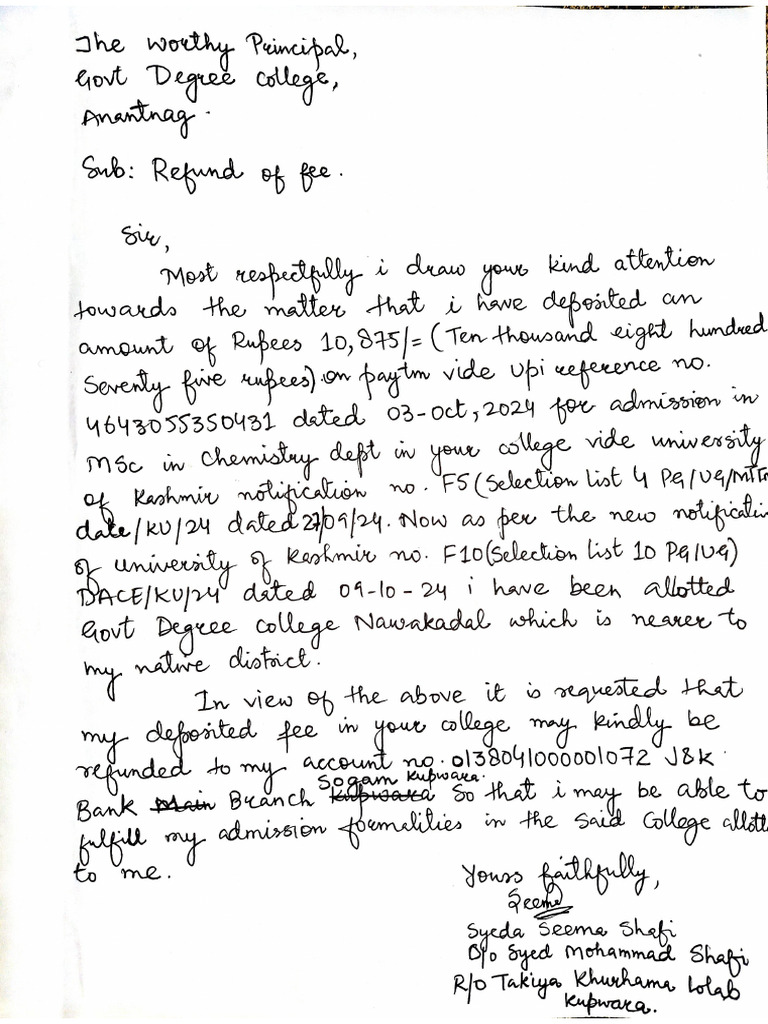 The worthy Principal,
Govt Degree college,
Anantnag.
Sub: Refund of fee.
Sir,
Most respectfully i draw your kind attention
towards the matter that i have deposited an
amount of Rupees 10,875/= (Ten thousand eight hundred
Seventy five rupees) on paytm vide upi reference no.
4643055350431 dated 03-Oct, 2024 for admission in
MSc in Chemistry dept in your college vide university
of Kashmir notification no. F5 (Selection List 4 PG/UG/
date/KU/24 dated 27/09/24. Now as per the new notificatio
of university of Kashmir no. F10 (Selection list 10 PG/UG)
DACE/KU/24 dated 09-10-24 i have been allotted
Govt Degree college Nawakadal which is nearer to
my native district.
In view of the above it is requested that
my deposited fee in your college may kindly be
refunded to my account no. 0138041000001072 J&K
Sogam Kupwara.
Bank Main Branch Kupwara So that i may be able to
fulfill my admission formalities in the said College allott
to me.
Yours faithfully,
Seema
Syeda Seema Shafi
D/o Syed Mohammad Shafi
R/O Takiya Khurhama Lolab
Kupwara.